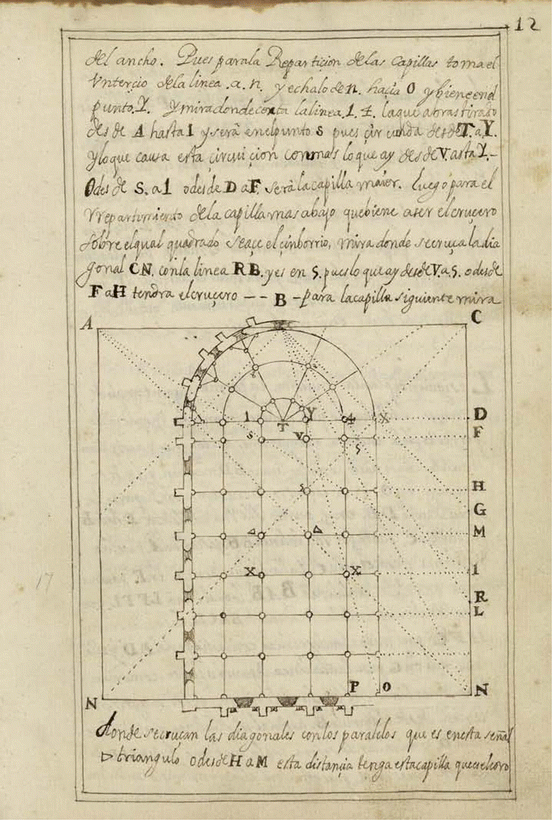 12
del ancho. Pues parala Repartiçion delas capillas toma el
Vntercio dela linea .a.n. y echalo de n. haçia O y biene en el
punto.Y. y mira donde corta la linea.1 4. la qual abras tirado
desde A hasta 1 y sera en el punto s pues circunda desde T.a.Y.
y lo que causa esta circuiçion con mas lo que ay desde V.asta Y.-
Odesde S.a1 odesde D a F. sera la capilla maior. Luego para el
rrepartimiento dela capilla mas abajo que biene a ser el cruçero
sobre el qual quadrado se açe el çinborrio, mira donde se cruça la dia
gonal CN. con la linea RB. yes en S. pues lo que ay desde V.a S. odesde
F a H tendra el cruçero -- B - para la capilla siguiente mira
A C
1 T Y 4 X D
s V F
S
H
G
M
X X 1
R
L
17
P O
N N
donde se cruçan las diagonales con los paralelos que es en esta señal
▷ triangulo odesde H a M esta distançia tenga esta capilla